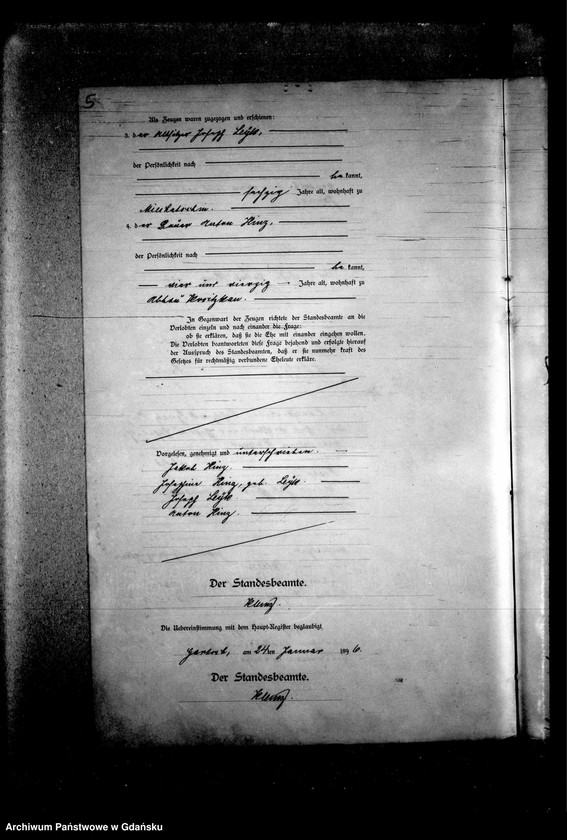 5
Als Zeugen waren zugezogen und erschienen:
3. der Altsitzer Joseph
der Persönlichkeit nach
be kannt,
sechzig Jahre alt, wohnhaft zu
4. der Bauer Anton Hinz,
der Persönlichkeit nach
be kannt,
vier und vierzig Jahre alt, wohnhaft zu
Abbau
In Gegenwart der Zeugen richtete der Standesbeamte an die
Verlobten einzeln und nach einander die Frage:
ob sie erklären, daß sie die Ehe mit einander eingehen wollen.
Die Verlobten beantworteten diese Frage bejahend und erfolgte hierauf
der Ausspruch des Standesbeamten, daß er sie nunmehr kraft des
Gesetzes für rechtmäßig verbundene Eheleute erkläre.
Vorgelesen, genehmigt und unterschrieben.
Jakob Hinz.
Josephine Hinz, geb.
Joseph
Anton Hinz.
Der Standesbeamte.
Die Uebereinstimmung mit dem Haupt-Register beglaubigt
am 24ten Januar 1896.
Der Standesbeamte.
Archiwum Państwowe w Gdańsku